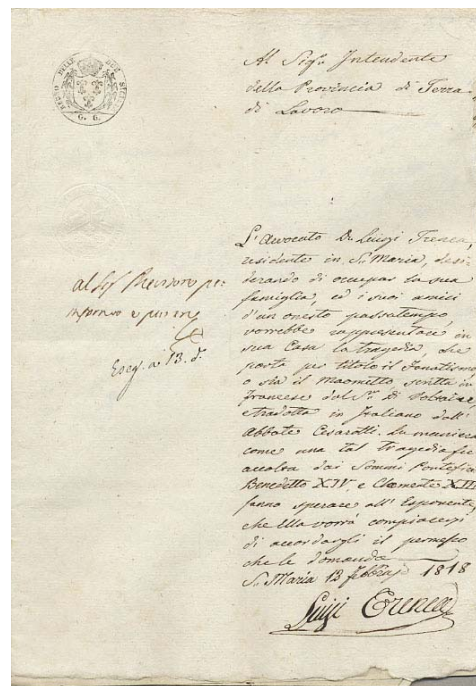 REGNO DELLE DUE SICILIE
G. 6.
Al Sig.r Intendente
della Provincia di Terra
di Lavoro
L'Avvocato D. Luigi Trenca,
residente in S. Maria, desi-
derando di occupar la sua
famiglia, ed i suoi amici
d'un onesto passatempo,
vorrebbe rappresentare in
sua Casa la tragedia, che
porta per titolo il Fanatismo,
o sia il Maometto scritta in
francese dal S.r D. Voltaire
e tradotta in Italiano dall'
Abbate Cesarotti. La maniera
come una tal tragedia fu
accolta dai Sommi Pontefici
Benedetto XIV, e Clemente XIII
fanno sperare all'Esponente,
che Ella vorrà compiacersi
di accordargli il permesso
che le domanda
S. Maria 13 1818
Luigi Trenca
al Sig.r Revisore per
Eseg. a 13. d.